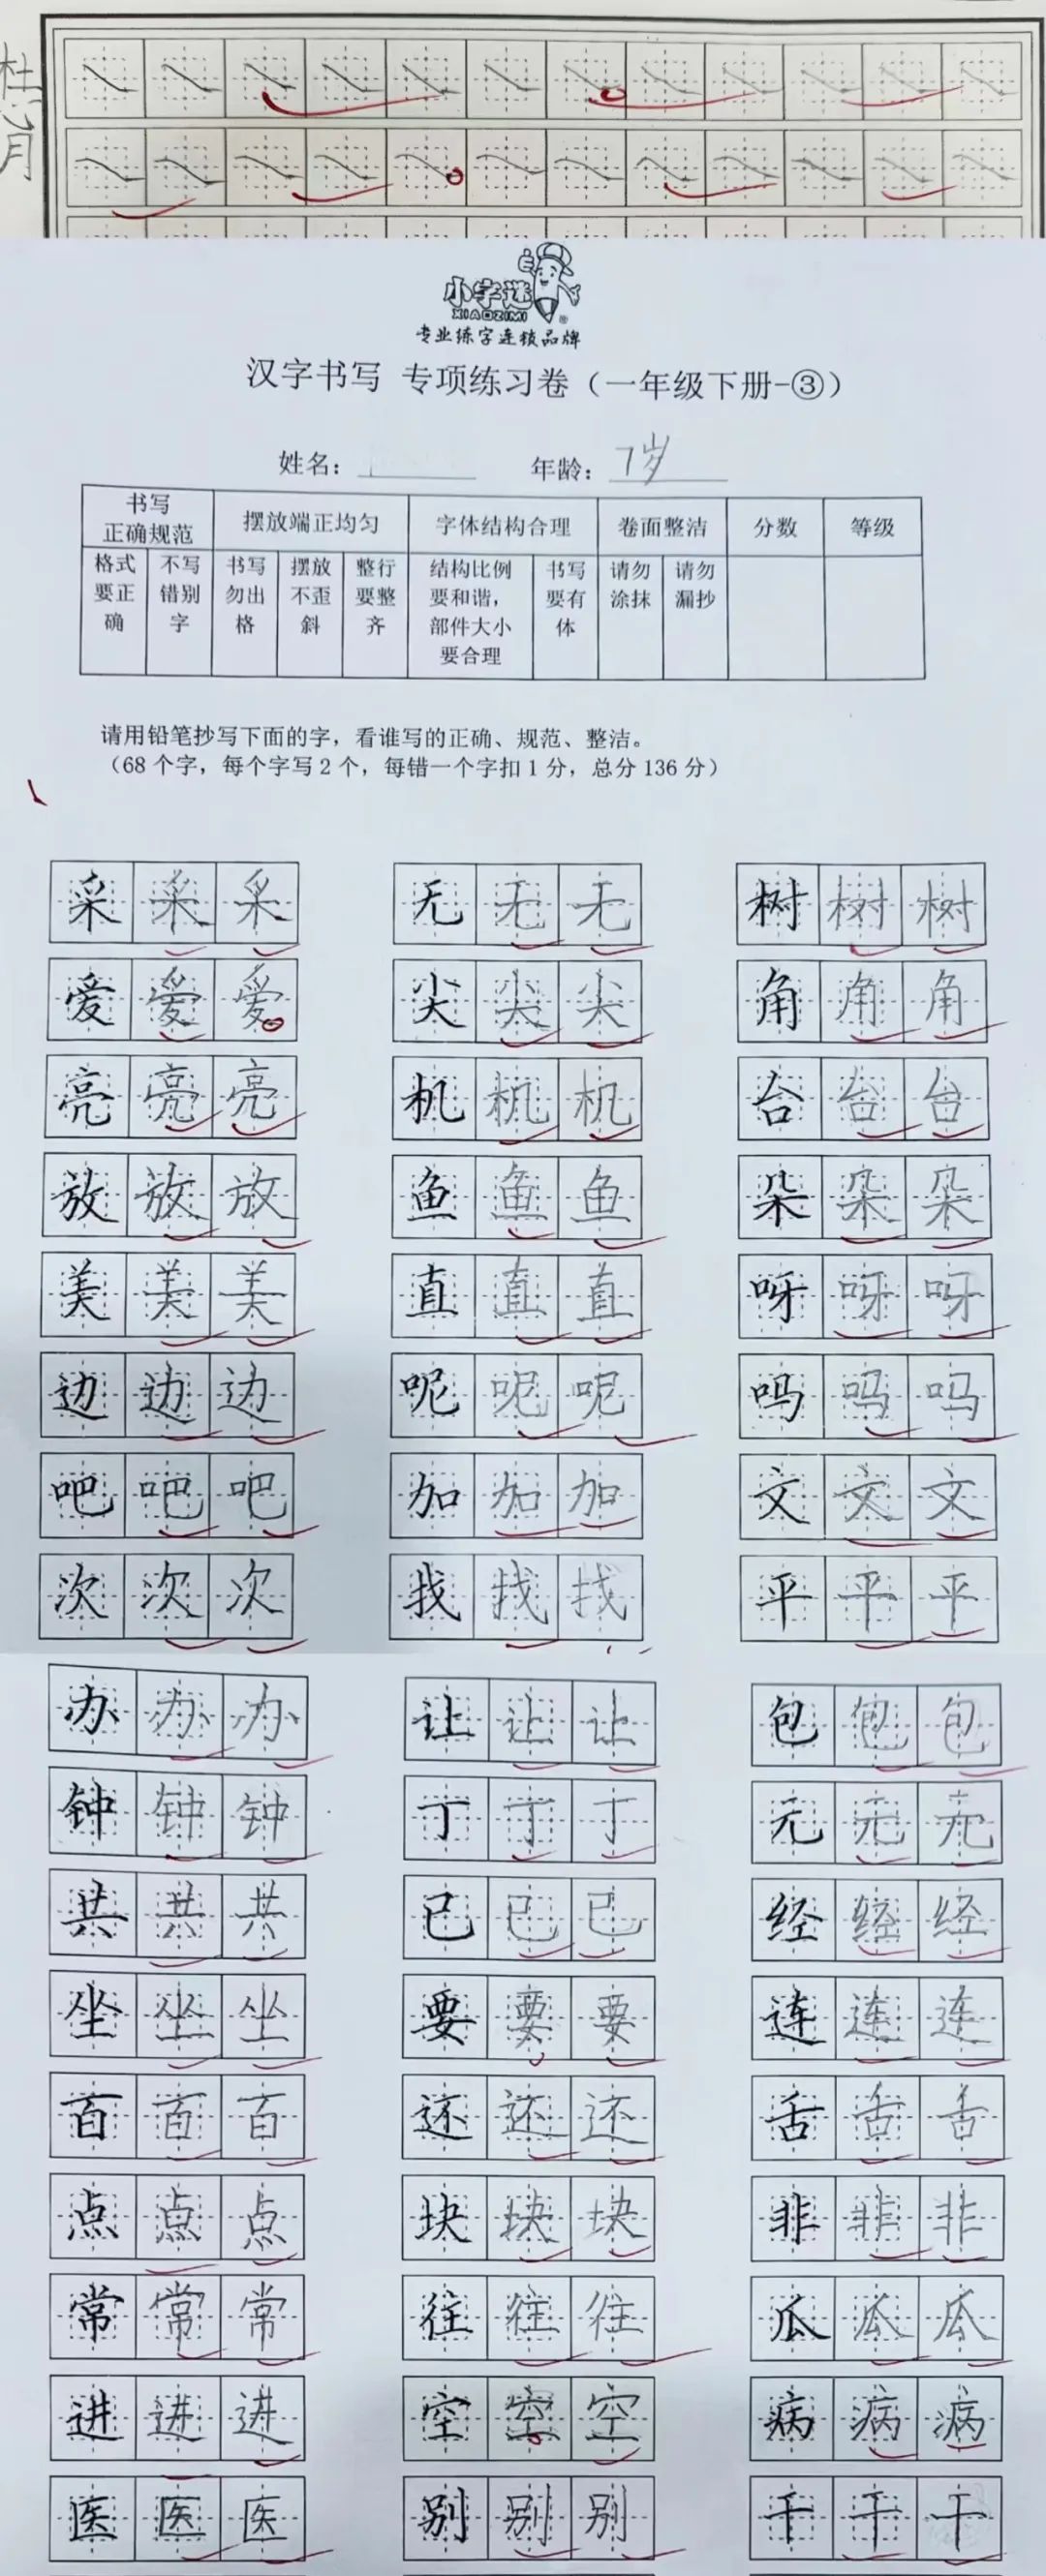 杜心月
小字迷
XIAOZIMI
®
专业练字连锁品牌
汉字书写 专项练习卷（一年级下册-③）
姓名： 年龄：7岁
书写正确规范 摆放端正均匀 字体结构合理 卷面整洁 分数 等级
格式要正确 不写错别字 书写勿出格 摆放不歪斜 整行要整齐 结构比例要和谐，部件大小要合理 书写要有体 请勿涂抹 请勿漏抄
请用铅笔抄写下面的字，看谁写的正确、规范、整洁。
（68 个字，每个字写 2 个，每错一个字扣 1 分，总分 136 分）
采采采 无无无 树树树
爱爱爱 尖尖尖 角角角
亮亮亮 机机机 台台台
放放放 鱼鱼鱼 朵朵朵
美美美 直直直 呀呀呀
边边边 呢呢呢 吗吗吗
吧吧吧 加加加 文文文
次次次 找找找 平平平
办办办 让让让 包包包
钟钟钟 丁丁丁 元元元
共共共 已已已 经经经
坐坐坐 要要要 连连连
百百百 还还还 舌舌舌
点点点 块块块 非非非
常常常 往往往 瓜瓜瓜
进进进 空空空 病病病
医医医 别别别 干干干